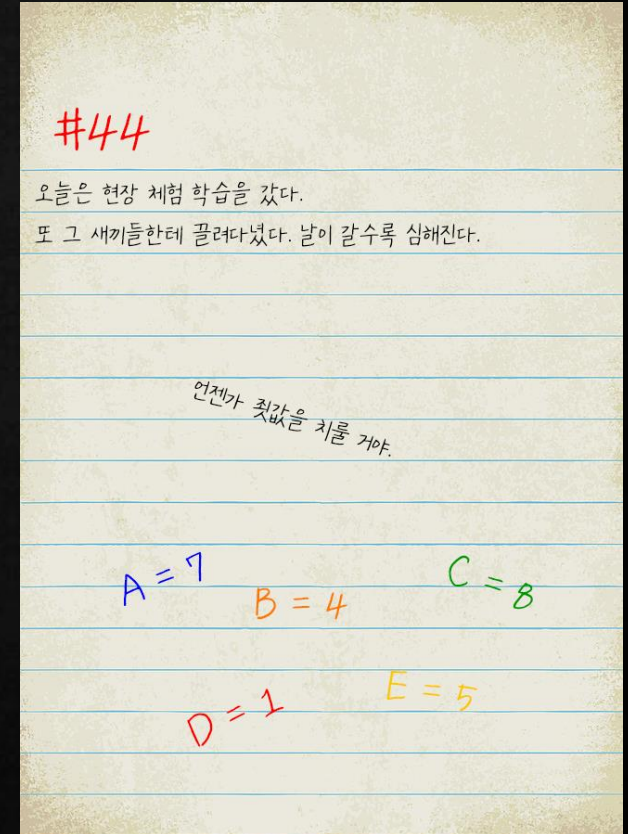 #44
오늘은 현장 체험 학습을 갔다.
또 그 새끼들한테 끌려다녔다. 날이 갈수록 심해진다.
언젠가 죗값을 치룰 거야.
A = 7
B = 4
C = 8
D = 1
E = 5